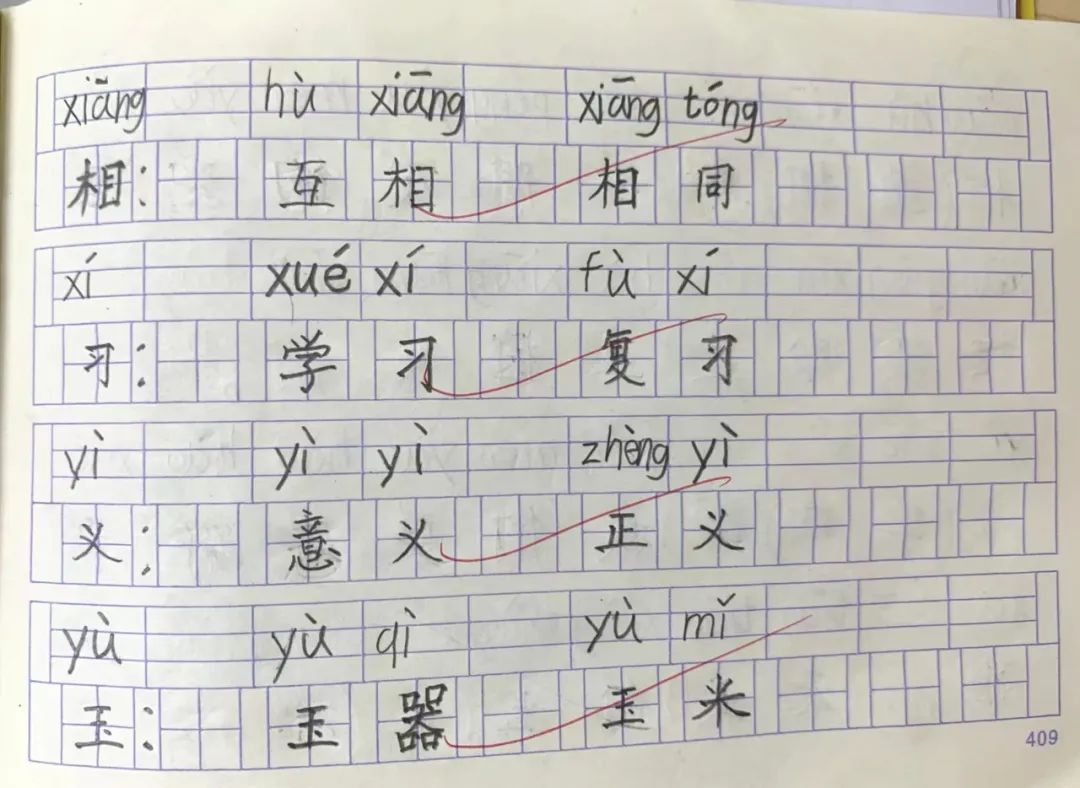 xiāng hù xiāng xiāng tóng
相: 互相 相同
xí xué xí fù xí
习: 学习 复习
yì yì yì zhèng yì
义: 意义 正义
yù yù qì yù mǐ
玉: 玉器 玉米
409